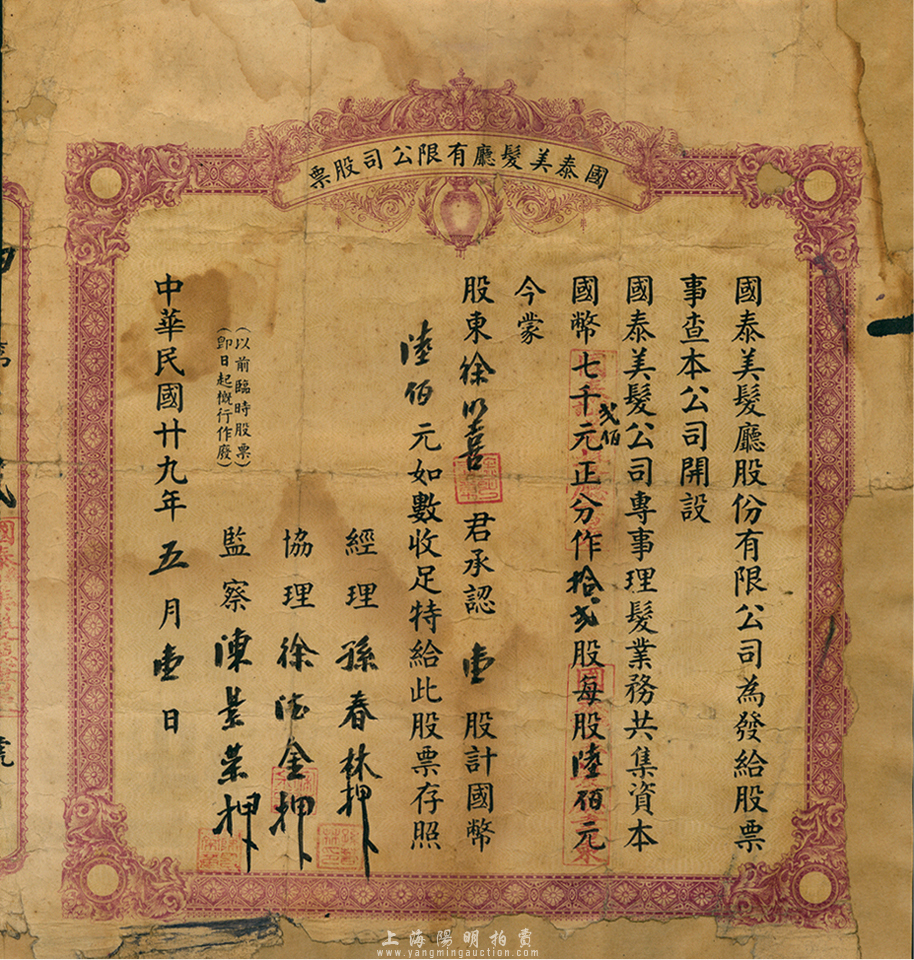 國泰美髮廳有限公司股票
國泰美髮廳股份有限公司為發給股票
事查本公司開設
國泰美髮公司專事理髮業務共集資本
國幣七千弍佰元正分作拾弍股每股陸佰元
今蒙
股東徐 喜君承認壹股計國幣
陸佰元如數收足特給此股票存照
經理孫春林押
協理徐 金押
監察陳景荣押
(以前臨時股票)
(即日起概行作廢)
中華民國廿九年五月壹日
上海陽明拍賣
www.yangmingauction.com